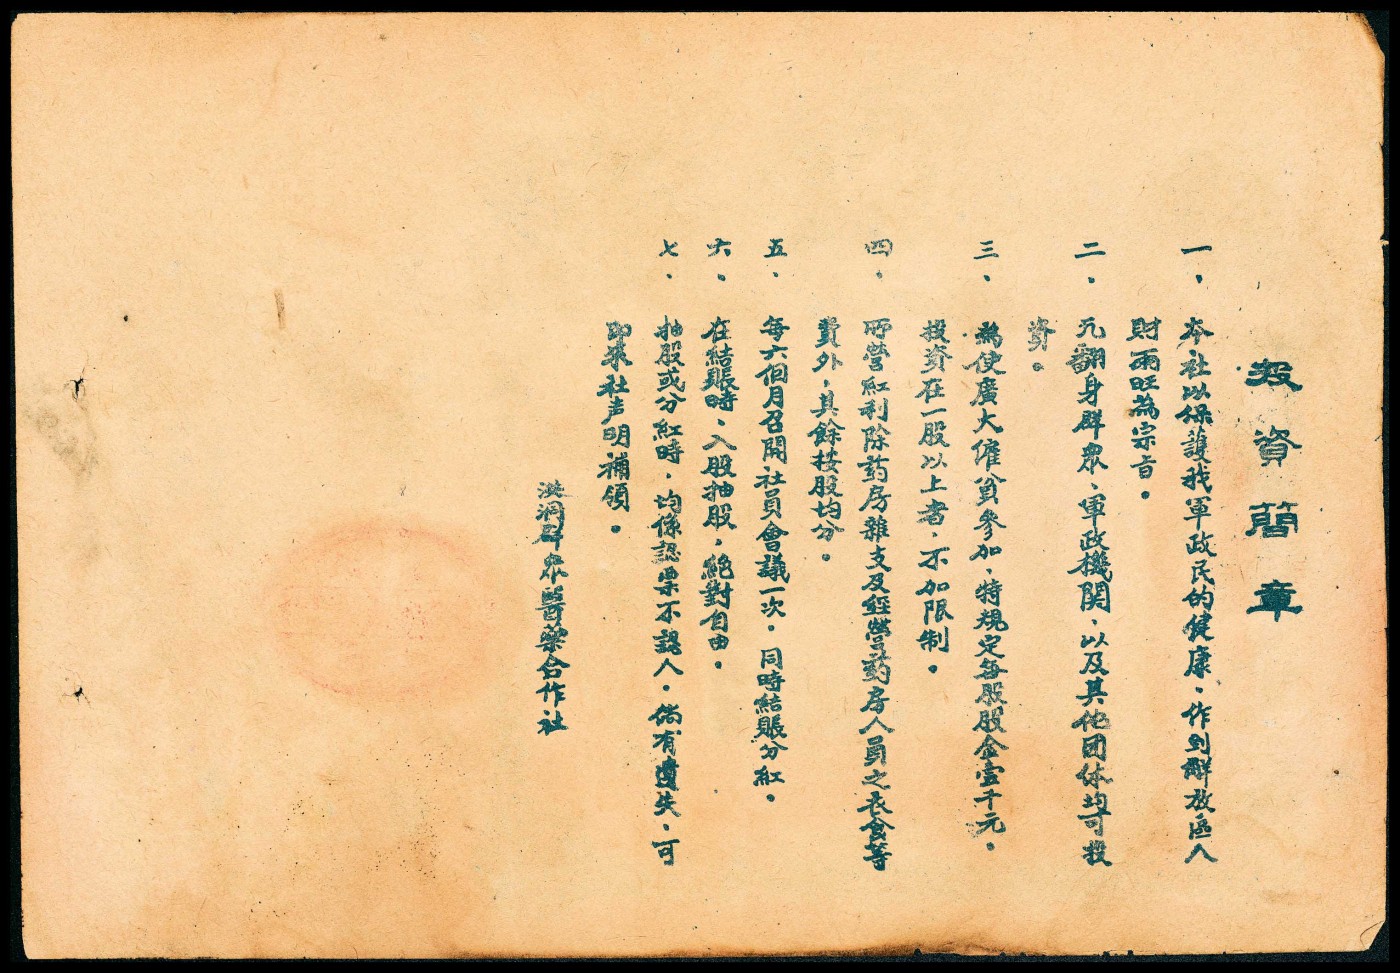 投資簡章
一、本社以保護我軍政民的健康、作到解放區人
財兩旺為宗旨。
二、凡翻身群眾、軍政機関、以及其他团体均可投
資。
三、為使廣大僱貧參加、特規定每股股金壹千元。
投資在一股以上者、不加限制。
四、所營紅利除葯房雜支及經營葯房人員之衣食等
費外、其餘按股均分。
五、每六個月召開社員會議一次。同時結賬分紅。
六、在結賬時、入股抽股、絕對自由。
七、抽股或分紅時、均係認票不認人。倘有遺失、可
即來社声明補領。
洪洞群眾醫藥合作社